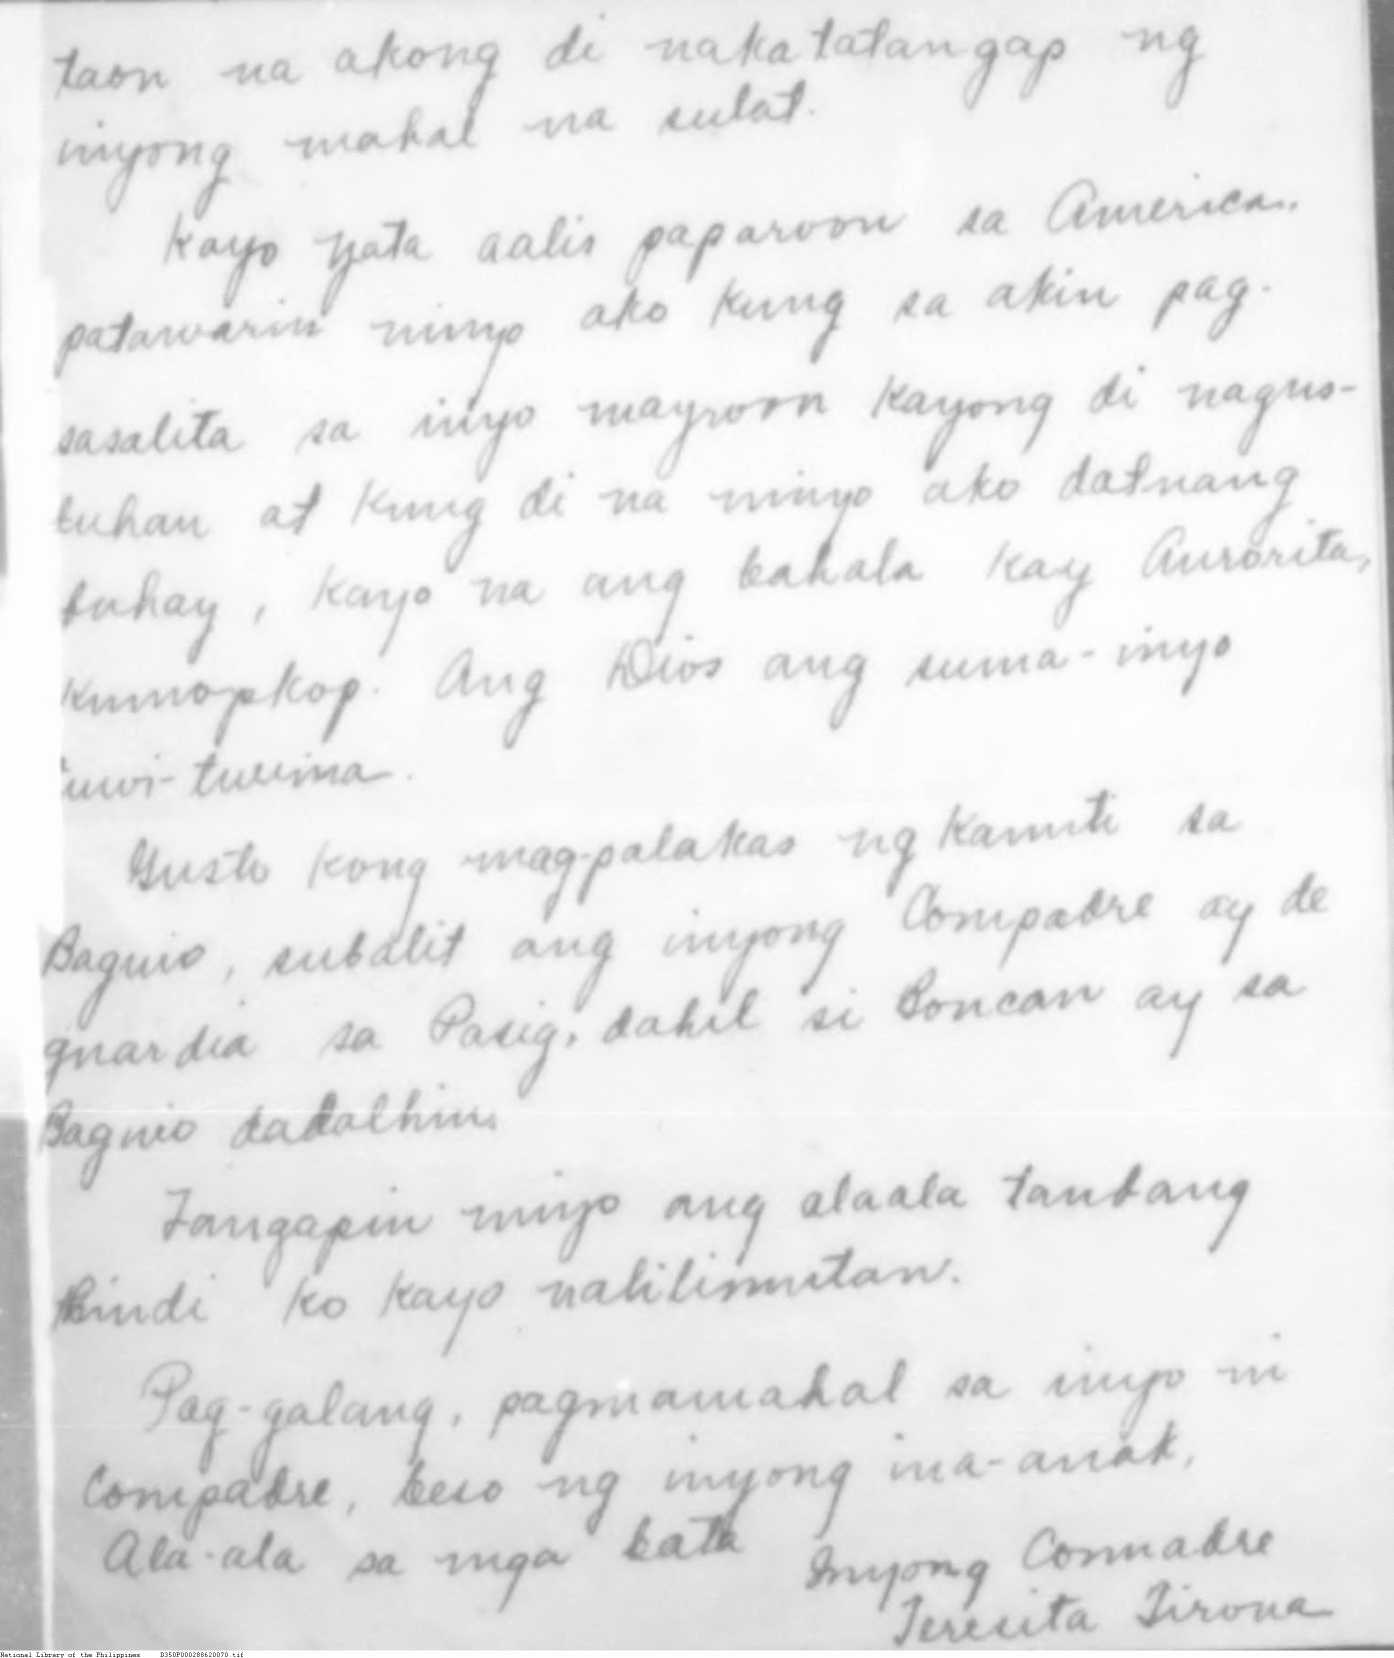 taon na akong di nakatatangap ng
inyong mahal na sulat.
Kayo yata aalis paparoon sa America..
patawarin ninyo ako kung sa akin pag-
sasalita sa inyo mayroon kayong di nagus-
tuhan at kung di na ninyo ako datnang
buhay, kayo na ang bahala kay Aurorita,
kumopkop. Ang Dios ang suma-inyo
tuwi-tuwina.
Gusto kong mag-palakas ng kaunti sa
Baguio, subalit ang inyong Compadre ay de
guardia sa Pasig, dahil si Boncan ay sa
Baguio dadalhin.
Tangapin ninyo ang alaala tandang
hindi ko kayo nalilimutan.
Pag-galang, pagmamahal sa inyo ni
Compadre, beso ng inyong ina-anak,
Ala-ala sa mga bata
Inyong Comadre
Teresita Tirona
National Library of the Philippines B350P000288620070.tif